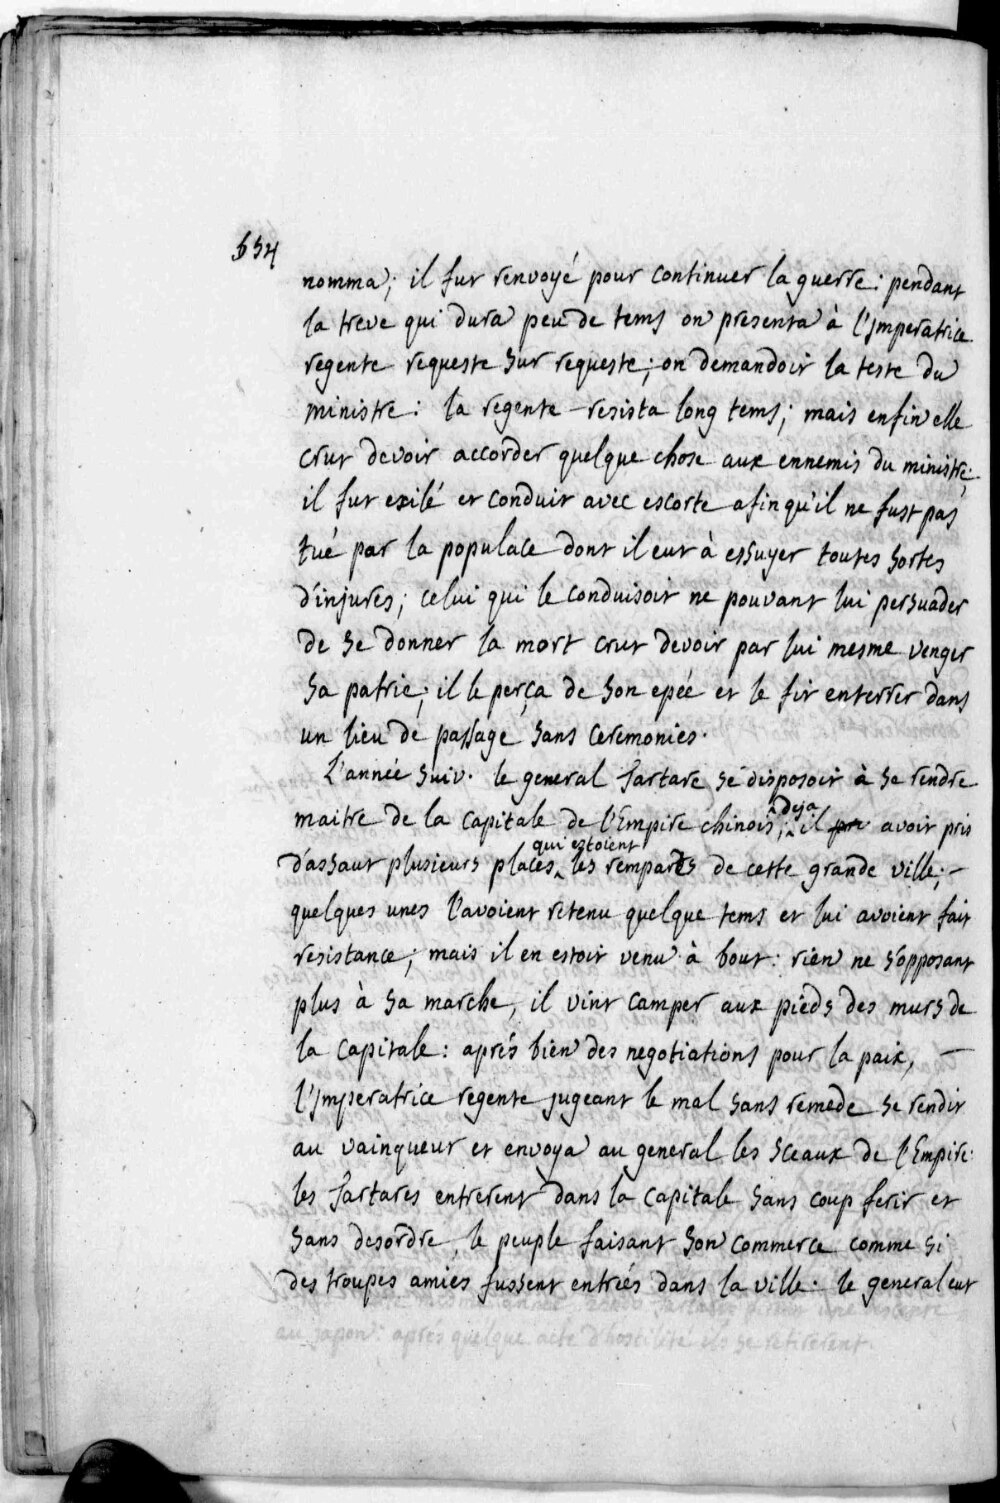 554
nomma; il fut renvoyé pour continuer la guerre: pendant
la treve qui dura peu de tems on presenta à l'jmperatrice
regente requeste sur requeste; on demandoit la teste du
ministre: la regente resista long tems; mais enfin elle
crut devoir accorder quelque chose aux ennemis du ministre;
il fut exilé et conduit avec escorte afin qu'il ne fust pas
tué par la populace dont il eut à essuyer toutes sortes
d'injures; celui qui le conduisoit ne pouvant lui persuader
de se donner la mort crut devoir par lui mesme venger
sa patrie; il le perça de son epée et le fit enterrer dans
un lieu de passage sans ceremonies.
L'année suiv. le general Tartare se disposoit à se rendre
maitre de la capitale de l'Empire chinois; deja il avoit pris
d'assaut plusieurs places qui estoient les remparts de cette grande ville; -
quelques unes l'avoient retenu quelque tems et lui avoient fait
resistance; mais il en estoit venu à bout: rien ne s'opposant
plus à sa marche, il vint camper aux pieds des murs de
la capitale: aprés bien des negotiations pour la paix, -
l'jmperatrice regente jugeant le mal sans remede se rendit
au vainqueur et envoya au general les sceaux de l'Empire:
les Tartares entrerent dans la capitale sans coup ferir et
sans desordre, le peuple faisant son commerce comme si
des troupes amies fussent entrées dans la ville. le general eut
au japon: aprés quelque acte d'hostilité ils se retirerent.